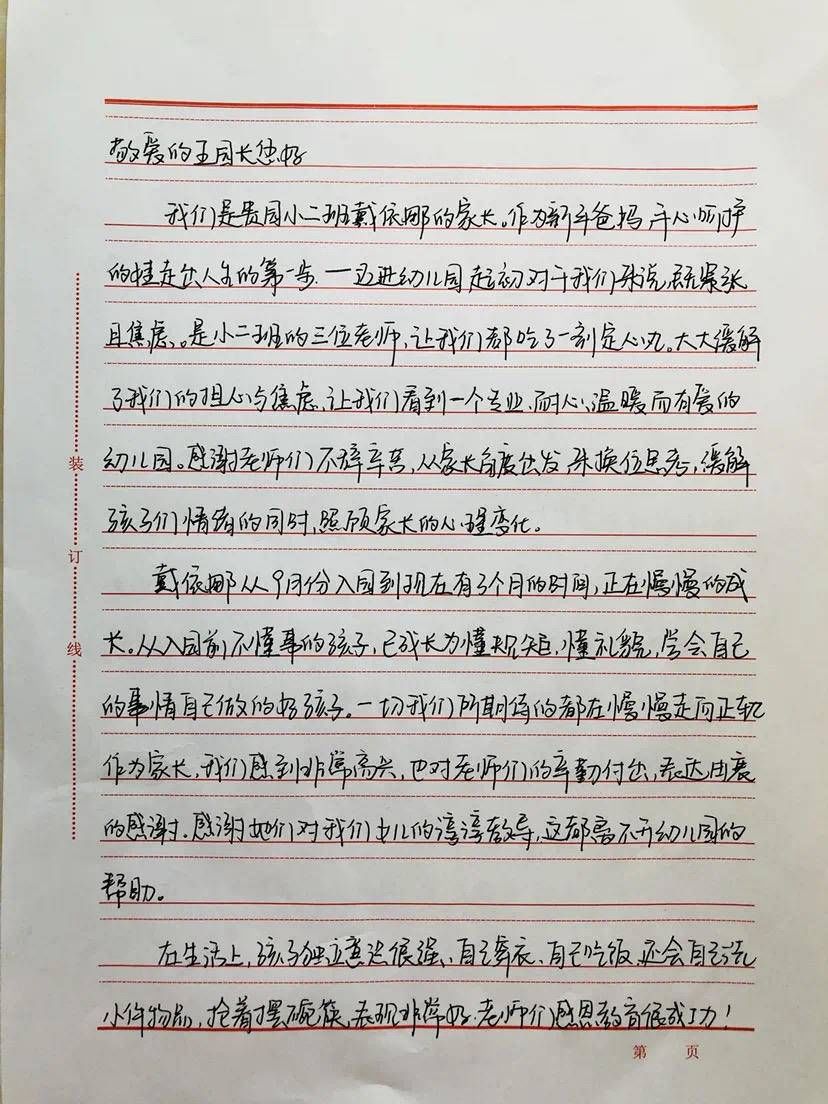 敬爱的王园长您好
我们是贵园小二班戴依娜的家长。作为新手爸妈,手心呵护
的娃走出人生的第一步、一迈进幼儿园起初对于我们来说,既紧张
且焦虑。是小二班的三位老师,让我们都吃了一剂定心丸。大大缓解
了我们的担心与焦虑、让我们看到一个专业、耐心、温暖而有爱的
幼儿园。感谢老师们不辞辛苦,从家长角度出发,来换位思考,缓解
孩子们情绪的同时,照顾家长的心理变化。
戴依娜从9月份入园到现在有3个月的时间,正在慢慢的成
长。从入园前不懂事的孩子,已成长为懂规矩,懂礼貌,学会自己
的事情自己做的好孩子。一切我们所期待的都在慢慢走向正轨
作为家长,我们感到非常高兴,也对老师们的辛勤付出,表达由衷
的感谢。感谢她们对我们女儿的谆谆教导,这都离不开幼儿园的
帮助。
在生活上,孩子独立意识很强、自己穿衣、自己吃饭、还会自己洗
小件物品,抢着摆碗筷,表现非常好。老师们感恩教育很成功!
装
订
线
第 页